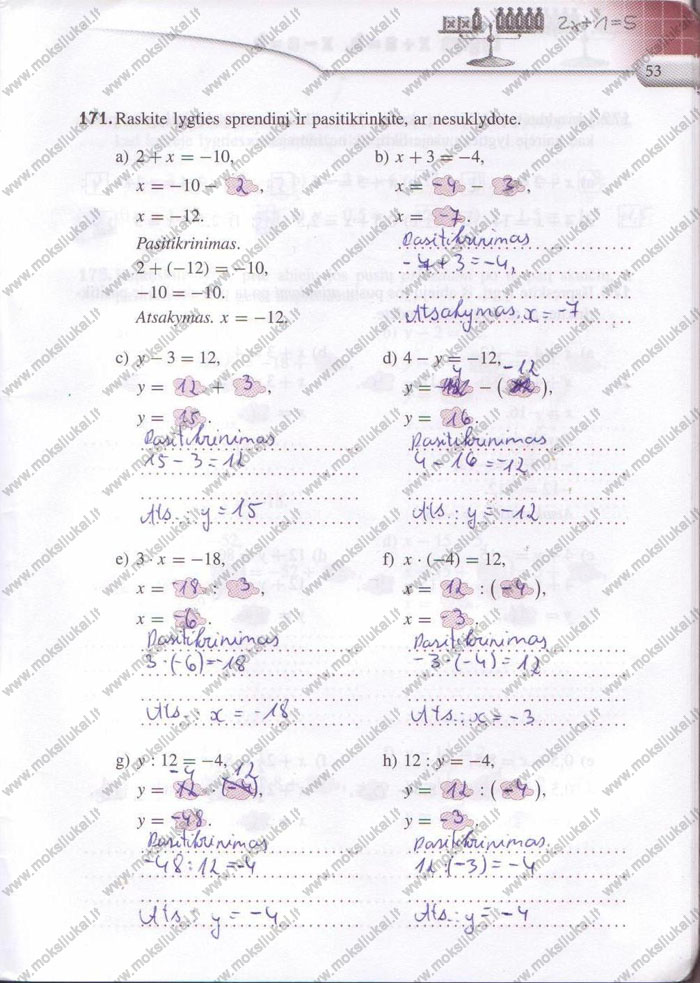 2x+1=5
53
171. Raskite lygties sprendinį ir pasitikrinkite, ar nesuklydote.
a) 2 + x = −10,
x = −10 − 2,
x = −12.
Pasitikrinimas.
2 + (−12) = −10,
−10 = −10.
Atsakymas. x = −12.
b) x + 3 = −4,
x = -4 − 3,
x = -7.
Pasitikrinimas
-7+3=-4,
Atsakymas. x=-7
c) y − 3 = 12,
y = 12 + 3,
y = 15.
Pasitikrinimas
15-3=12
Ats.: y=15
d) 4 − y = −12,
y = 4 − (-12),
y = 16.
Pasitikrinimas
4-16=-12
Ats.: y=-12
e) 3 · x = −18,
x = -18 : 3,
x = -6.
Pasitikrinimas
3·(-6)=-18
Ats.: x=-18
f) x · (−4) = 12,
x = 12 : (-4),
x = 3.
Pasitikrinimas
-3·(-4)=12
Ats.: x=-3
g) y : 12 = −4,
y = -4 · 12,
y = -48.
Pasitikrinimas
-48:12=-4
Ats.: y=-4
h) 12 : y = −4,
y = 12 : (-4),
y = -3.
Pasitikrinimas.
12:(-3)=-4
Ats.: y=-4
www.moksliukai.lt